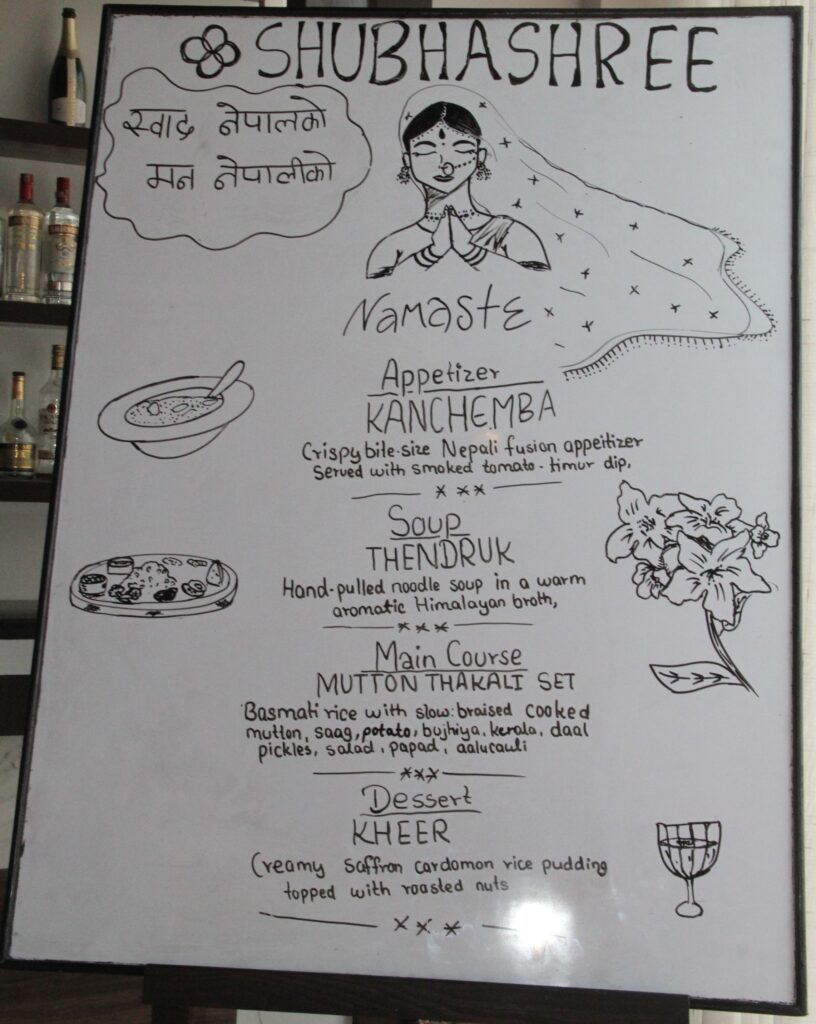 SHUBHASHREE
स्वाद नेपालको
मन नेपालीको
Namaste
Appetizer
KANCHEMBA
Crispy bite-size Nepali fusion appeitizer
Served with smoked tomato - timur dip,
Soup
THENDRUK
Hand-pulled noodle soup in a warm
aromatic Himalayan broth,
Main Course
MUTTON THAKALI SET
Basmati rice with slow-braised cooked
mutton, saag, potato, bujhiya, kerala, daal
pickles, salad, papad, aalucauli
Dessert
KHEER
Creamy saffron cardomon rice pudding
topped with roasted nuts